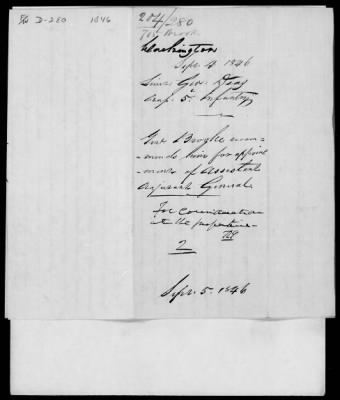 D-280 1846
204/280
Washington
Sept 4 1846
Geo. Deas
5th Infantry
Genl Brooke recom-
-mends him for appoint-
-ment of Assistant
Adjutant General
For consideration
at the proper time
2
Sept. 5. 1846